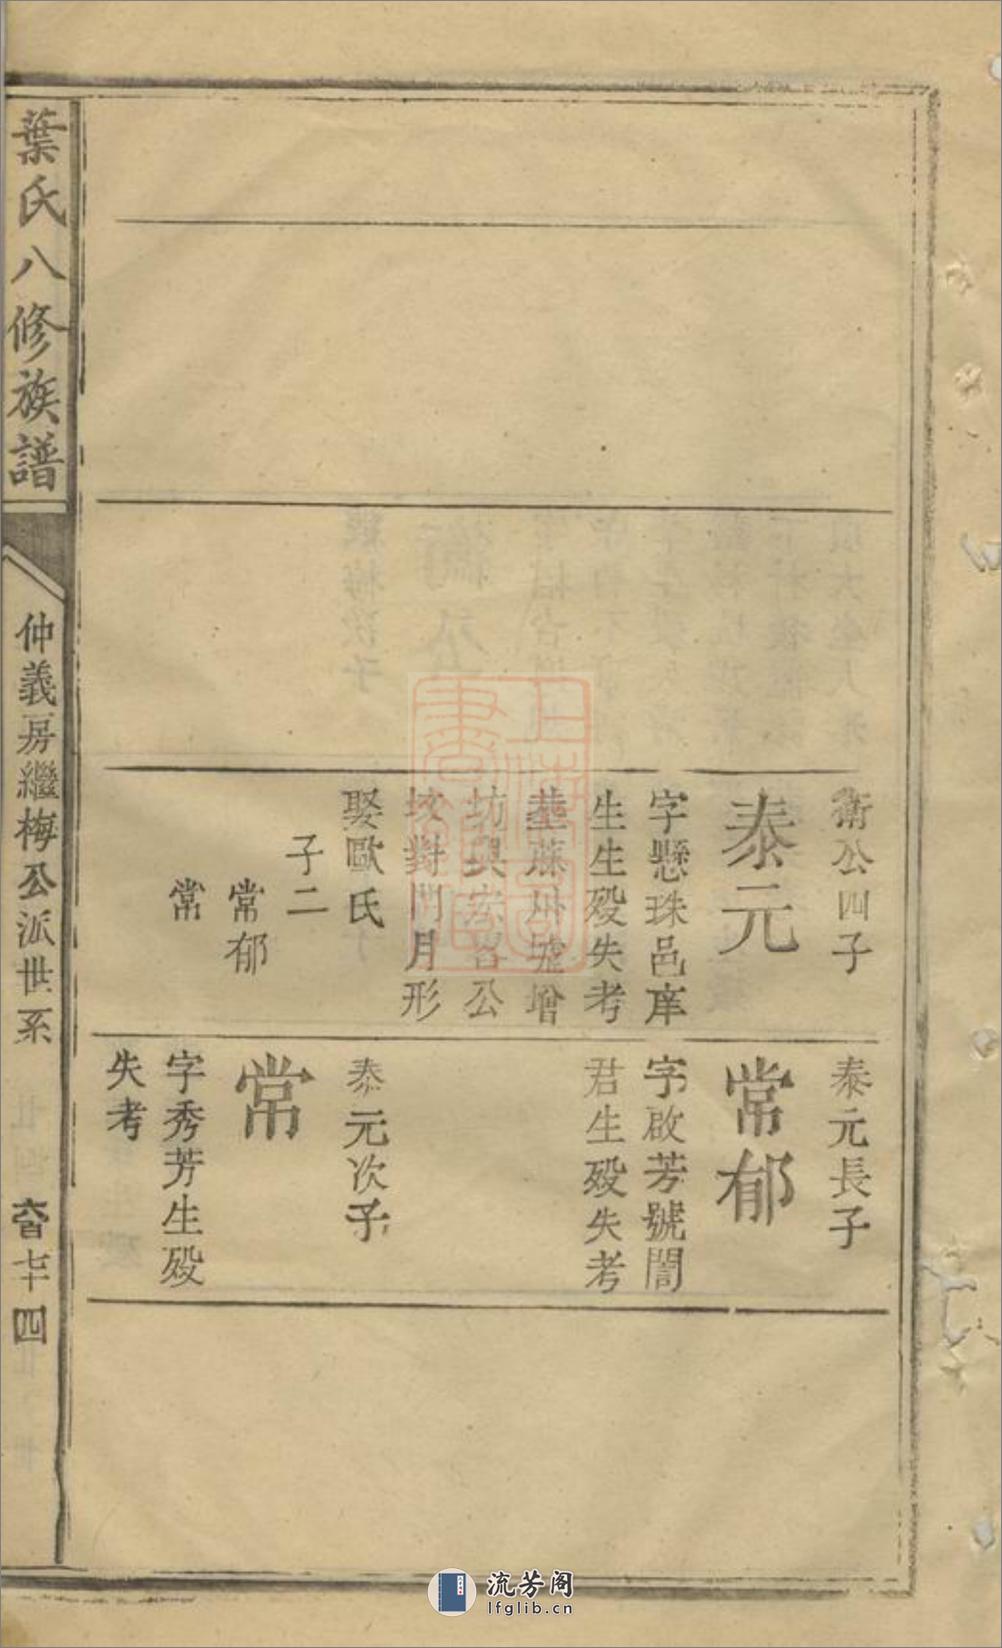 衛公四子
泰元
字懸珠邑庠
生生殁失考
塟蘇州墟增
坊與宏畧公
坟對門月形
娶歐氏
子二
常郁
常
泰元長子
常郁
字啟芳號誾
君生殁失考
泰元次子
常
字秀芳生殁
失考
葉氏八修族譜
仲義房繼梅公派世系
七十四
上海圖書館藏
流芳阁
lfglib.cn